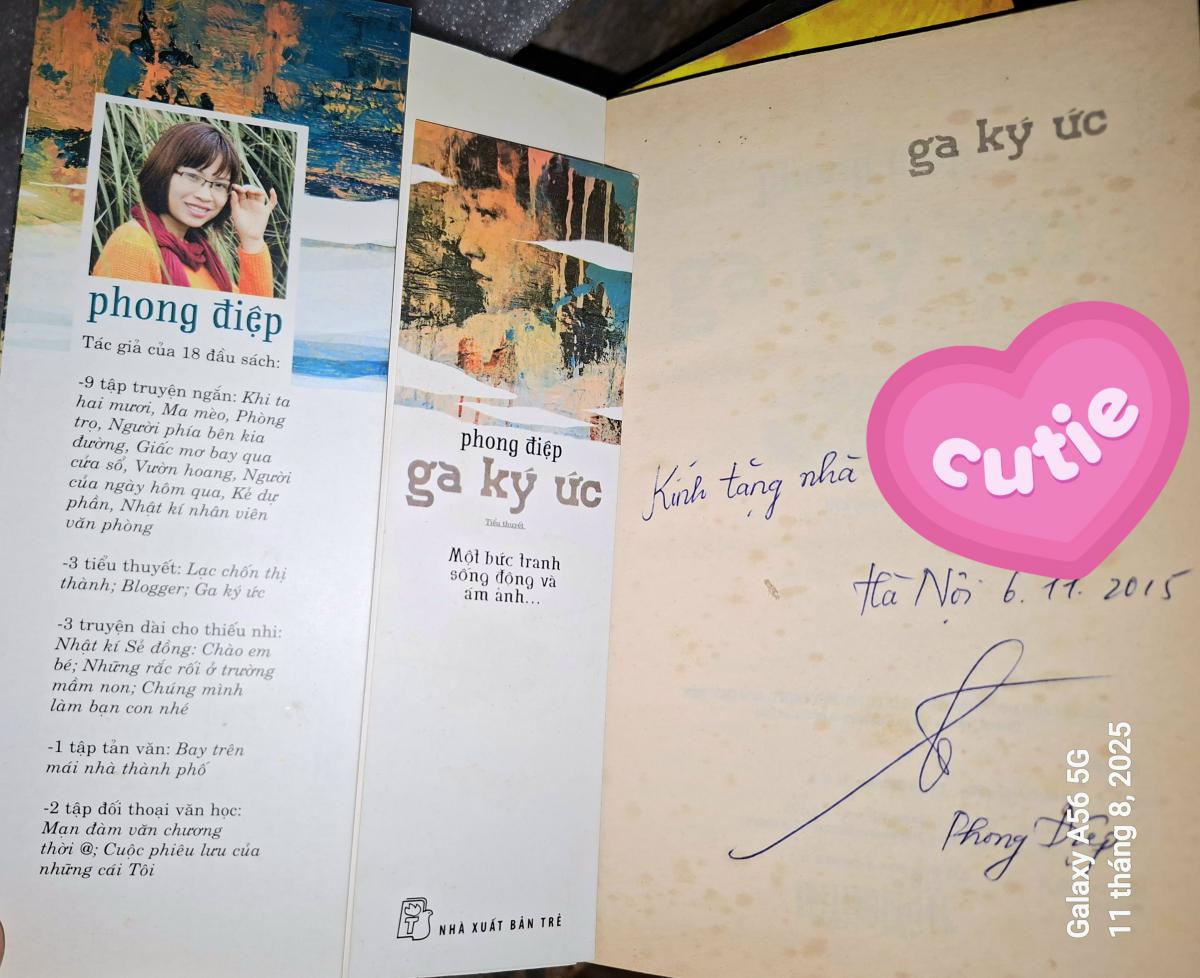 phong điệp
Tác giả của 18 đầu sách:
-9 tập truyện ngắn: Khi ta
hai mươi, Ma mèo, Phòng
trọ, Người phía bên kia
đường, Giấc mơ bay qua
cửa sổ, Vườn hoang, Người
của ngày hôm qua, Kẻ dự
phần, Nhật kí nhân viên
văn phòng
-3 tiểu thuyết: Lạc chốn thị
thành; Blogger; Ga ký ức
-3 truyện dài cho thiếu nhi:
Nhật kí Sẻ đồng: Chào em
bé; Những rắc rối ở trường
mầm non; Chúng mình
làm bạn con nhé
-1 tập tản văn: Bay trên
mái nhà thành phố
-2 tập đối thoại văn học:
Mạn đàm văn chương
thời @; Cuộc phiêu lưu của
những cái Tôi
phong điệp
ga ký ức
Tiểu thuyết
Một bức tranh
sống động và
ám ảnh...
NHÀ XUẤT BẢN TRẺ
ga ký ức
Kính tặng nhà
cutie
Hà Nội 6.11.2015
Phong Điệp
Galaxy A56 5G
11 tháng 8, 2025